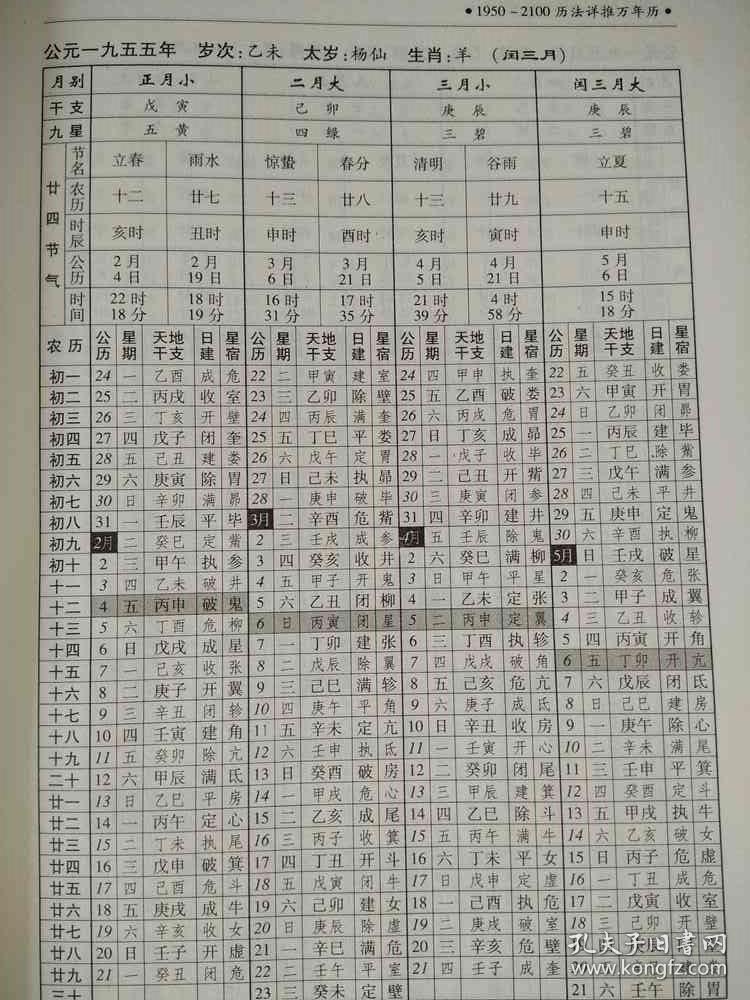 • 1950－2100 历法详推万年历 •
公元一九五五年 岁次:乙未 太岁:杨仙 生肖:羊 (闰三月)
月别 正月小 二月大 三月小 闰三月大
干支 戊寅 己卯 庚辰 庚辰
九星 五黄 四绿 三碧 三碧
廿四节气
节名 立春 雨水 惊蛰 春分 清明 谷雨 立夏
农历 十二 廿七 十三 廿八 十三 廿九 十五
时辰 亥时 丑时 申时 酉时 亥时 寅时 申时
公历 2月4日 2月19日 3月6日 3月21日 4月5日 4月21日 5月6日
时间 22时18分 18时19分 16时31分 17时35分 21时39分 4时58分 15时18分
农历 公历 星期 天地干支 日建 星宿 公历 星期 天地干支 日建 星宿 公历 星期 天地干支 日建 星宿 公历 星期 天地干支 日建 星宿
初一 24 一 乙酉 成 危 22 二 甲寅 建 室 24 四 甲申 执 奎 22 五 癸丑 收 娄
初二 25 二 丙戌 收 室 23 三 乙卯 除 壁 25 五 乙酉 破 娄 23 六 甲寅 开 胃
初三 26 三 丁亥 开 壁 24 四 丙辰 满 奎 26 六 丙戌 危 胃 24 日 乙卯 闭 昴
初四 27 四 戊子 闭 奎 25 五 丁巳 平 娄 27 日 丁亥 成 昴 25 一 丙辰 建 毕
初五 28 五 己丑 建 娄 26 六 戊午 定 胃 28 一 戊子 收 毕 26 二 丁巳 除 觜
初六 29 六 庚寅 除 胃 27 日 己未 执 昴 29 二 己丑 开 觜 27 三 戊午 满 参
初七 30 日 辛卯 满 昴 28 一 庚申 破 毕 30 三 庚寅 闭 参 28 四 己未 平 井
初八 31 一 壬辰 平 毕 3月 二 辛酉 危 觜 31 四 辛卯 建 井 29 五 庚申 定 鬼
初九 2月 二 癸巳 定 觜 2 三 壬戌 成 参 4月 五 壬辰 除 鬼 30 六 辛酉 执 柳
初十 2 三 甲午 执 参 3 四 癸亥 收 井 2 六 癸巳 满 柳 5月 日 壬戌 破 星
十一 3 四 乙未 破 井 4 五 甲子 开 鬼 3 日 甲午 平 星 2 一 癸亥 危 张
十二 4 五 丙申 破 鬼 5 六 乙丑 闭 柳 4 一 乙未 定 张 3 二 甲子 成 翼
十三 5 六 丁酉 危 柳 6 日 丙寅 闭 星 5 二 丙申 定 翼 4 三 乙丑 收 轸
十四 6 日 戊戌 成 星 7 一 丁卯 建 张 6 三 丁酉 执 轸 5 四 丙寅 开 角
十五 7 一 己亥 收 张 8 二 戊辰 除 翼 7 四 戊戌 破 角 6 五 丁卯 开 亢
十六 8 二 庚子 开 翼 9 三 己巳 满 轸 8 五 己亥 危 亢 7 六 戊辰 闭 氐
十七 9 三 辛丑 闭 轸 10 四 庚午 平 角 9 六 庚子 成 氐 8 日 己巳 建 房
十八 10 四 壬寅 建 角 11 五 辛未 定 亢 10 日 辛丑 收 房 9 一 庚午 除 心
十九 11 五 癸卯 除 亢 12 六 壬申 执 氐 11 一 壬寅 开 心 10 二 辛未 满 尾
二十 12 六 甲辰 满 氐 13 日 癸酉 破 房 12 二 癸卯 闭 尾 11 三 壬申 平 箕
廿一 13 日 乙巳 平 房 14 一 甲戌 危 心 13 三 甲辰 建 箕 12 四 癸酉 定 斗
廿二 14 一 丙午 定 心 15 二 乙亥 成 尾 14 四 乙巳 除 斗 13 五 甲戌 执 牛
廿三 15 二 丁未 执 尾 16 三 丙子 收 箕 15 五 丙午 满 牛 14 六 乙亥 破 女
廿四 16 三 戊申 破 箕 17 四 丁丑 开 斗 16 六 丁未 平 女 15 日 丙子 危 虚
廿五 17 四 己酉 危 斗 18 五 戊寅 闭 牛 17 日 戊申 定 虚 16 一 丁丑 成 危
廿六 18 五 庚戌 成 牛 19 六 己卯 建 女 18 一 己酉 执 危 17 二 戊寅 收 室
廿七 19 六 辛亥 收 女 20 日 庚辰 除 虚 19 二 庚戌 破 室 18 三 己卯 开 壁
廿八 20 日 壬子 开 虚 21 一 辛巳 满 危 20 三 辛亥 危 壁
廿九 21 一 癸丑 闭 危 22 二 壬午 平 室 21 四 壬子 成 奎
三十 23 三 癸未 定 壁 21 六 壬午 除 胃
孔夫子旧书网
www.kongfz.com